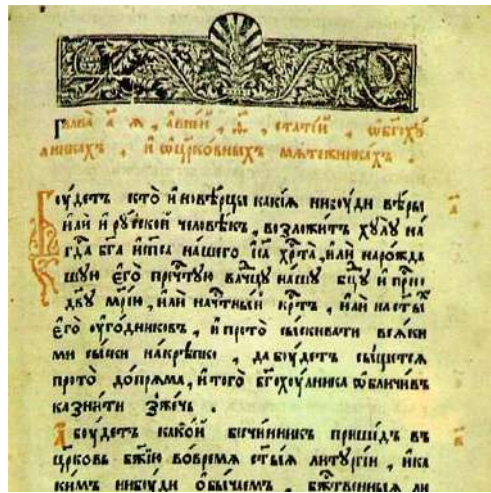 Глава̀ а҃ я҆, а в не́й, ѳ҃, статі́й, ѡ҆ бг҃охꙋ́
лникахъ, и҆ ѡ҆ цр҃ко́вныхъ мѧте́жникахъ.
Бꙋ́детъ кто̀ и҆новѣ́рцы какі́я нибꙋ́ди вѣ́ры
и҆лѝ и҆ рꙋ́ской человѣ́къ, возложи́тъ хꙋлꙋ̀ на
гдⷭ҇а бг҃а и҆ сп҃са на́шего і҆с҃а хрⷭ҇та̀, и҆лѝ наро́ждь
шꙋю є҆го̀ пречⷭ҇тꙋю влⷣчцꙋ на́шꙋ бцⷣꙋ и҆ прⷭ҇но
дв҃ꙋ мр҃і́ю, и҆лѝ на чⷭ҇тны́й крⷭ҇тъ, и҆лѝ на ст҃ы́хъ
є҆го̀ ᲂу҆го́дниковъ, и҆ про то̀ сы́скивати всѧ́ки
ми сы́ски на крѣ́пко, да бꙋ́детъ сы́щетсѧ
про то̀ до́прѧма, и҆ того̀ бг҃охꙋ́лника ѡ҆бличи́въ
казни́ти зже́чь.
А҆ бꙋ́детъ како́й бесчи́нникъ прише́дъ в
цр҃ковь бж҃ію во вре́мѧ ст҃ы́ѧ литꙋргі́и, и҆ ка
ки́мъ нибꙋ́ди ѻ҆бы́чаемъ, бжⷭ҇твенныѧ ли
а҃
в҃